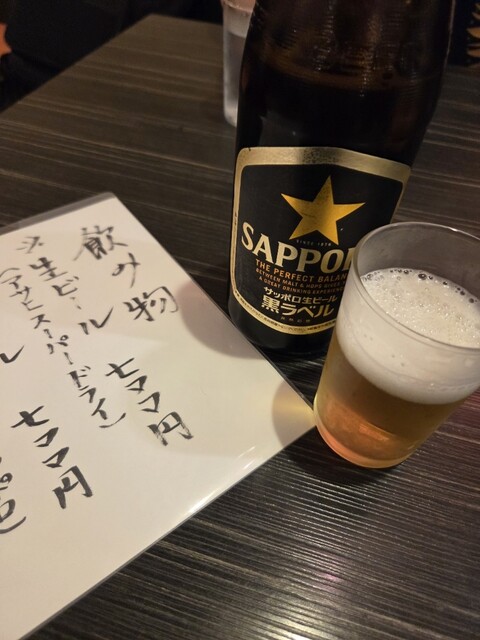 飲み物
生ビール
七〇〇円
(アサヒスーパードライ)
七〇〇円
SINCE 1876
SAPPO
THE PERFECT BALAN
BETWEEN MALT & HOPS
A GREAT DRINKING EXPERIEN
サッポロ生ビール
黒ラベル